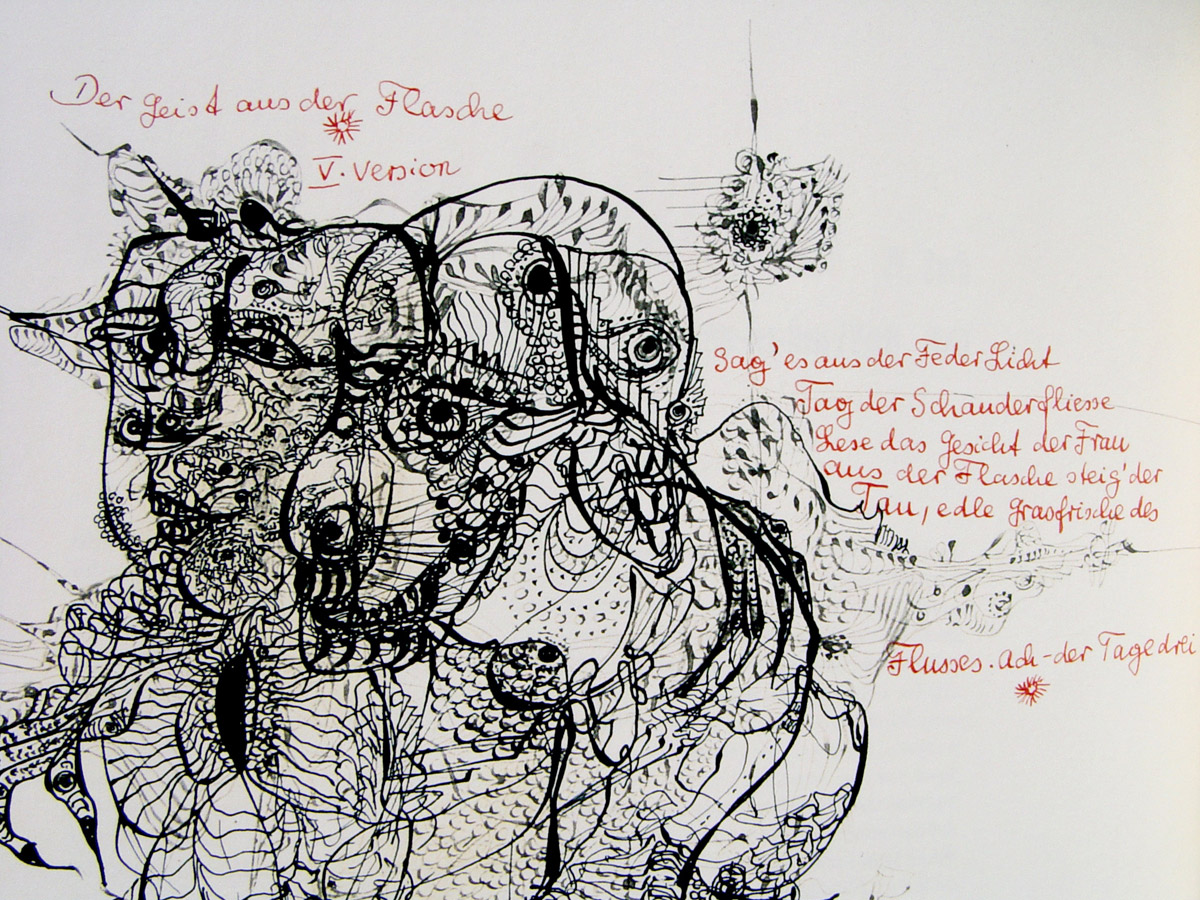 Der Geist aus der Flasche
V. Version
Sag' es aus der Feder Licht
Tag der Schauder fliesse
Lese das Gesicht der Frau
aus der Flasche steig' der
Tau, edle grasfrische des
Flusses. Ach - der Tage drei